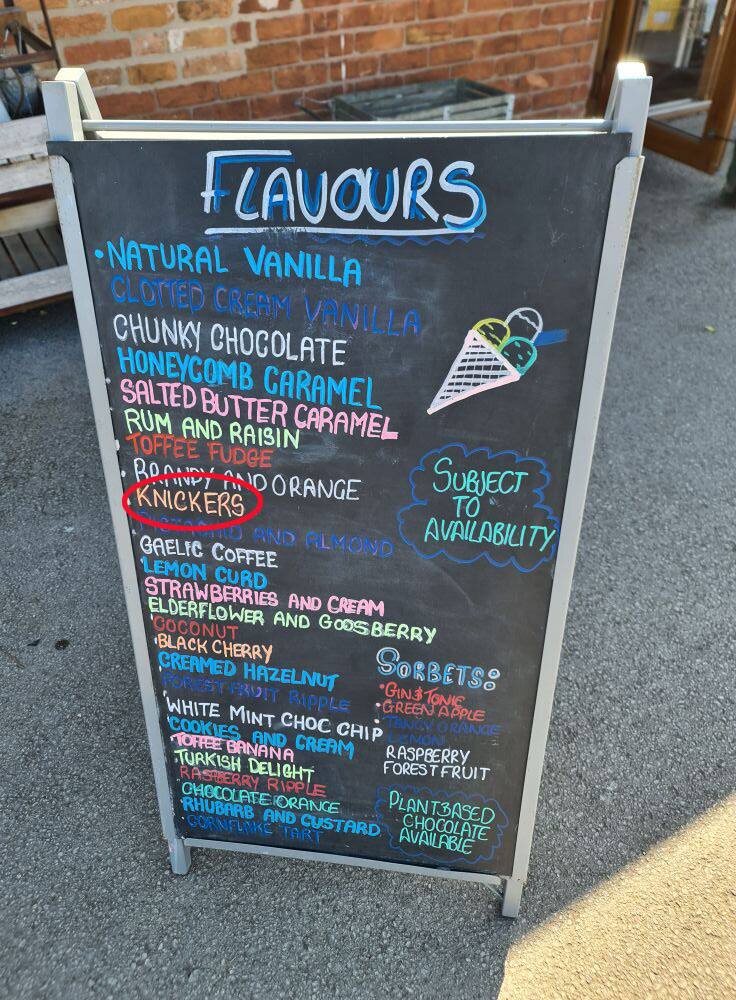 FLAVOURS
NATURAL VANILLA
CLOTTED CREAM VANILLA
CHUNKY CHOCOLATE
HONEYCOMB CARAMEL
SALTED BUTTER CARAMEL
RUM AND RAISIN
TOFFEE FUDGE
BRANDY AND ORANGE
KNICKERS
PISTACHIO AND ALMOND
GAELIC COFFEE
LEMON CURD
STRAWBERRIES AND CREAM
ELDERFLOWER AND GOOSBERRY
COCONUT
BLACK CHERRY
CREAMED HAZELNUT
FOREST FRUIT RIPPLE
WHITE MINT CHOC CHIP
COOKIES AND CREAM
TOFFEE BANANA
TURKISH DELIGHT
RASPBERRY RIPPLE
CHOCOLATE ORANGE
RHUBARB AND CUSTARD
CORNFLAKE TART
SUBJECT
TO
AVAILABILITY
SORBETS:
GIN & TONIC
GREEN APPLE
TANGY ORANGE
LEMON
RASPBERRY
FOREST FRUIT
PLANT BASED
CHOCOLATE
AVAILABLE